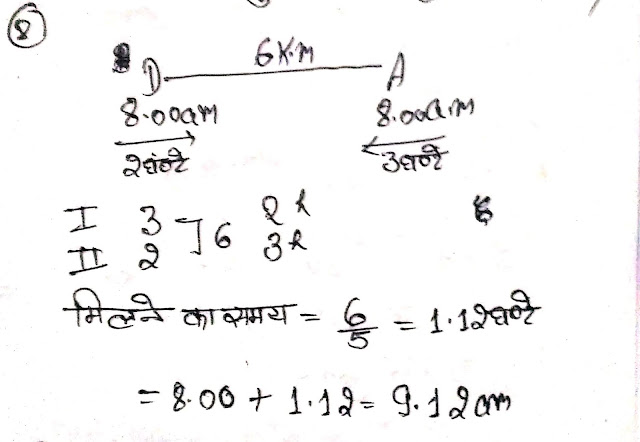 8
6K.m
D A
8.00am 8.00a.m
2घंटे 3घण्टे
I 3 ] 6 2h
II 2 3h
मिलने का समय = 6/5 = 1.12घण्टे
= 8.00 + 1.12 = 9.12am